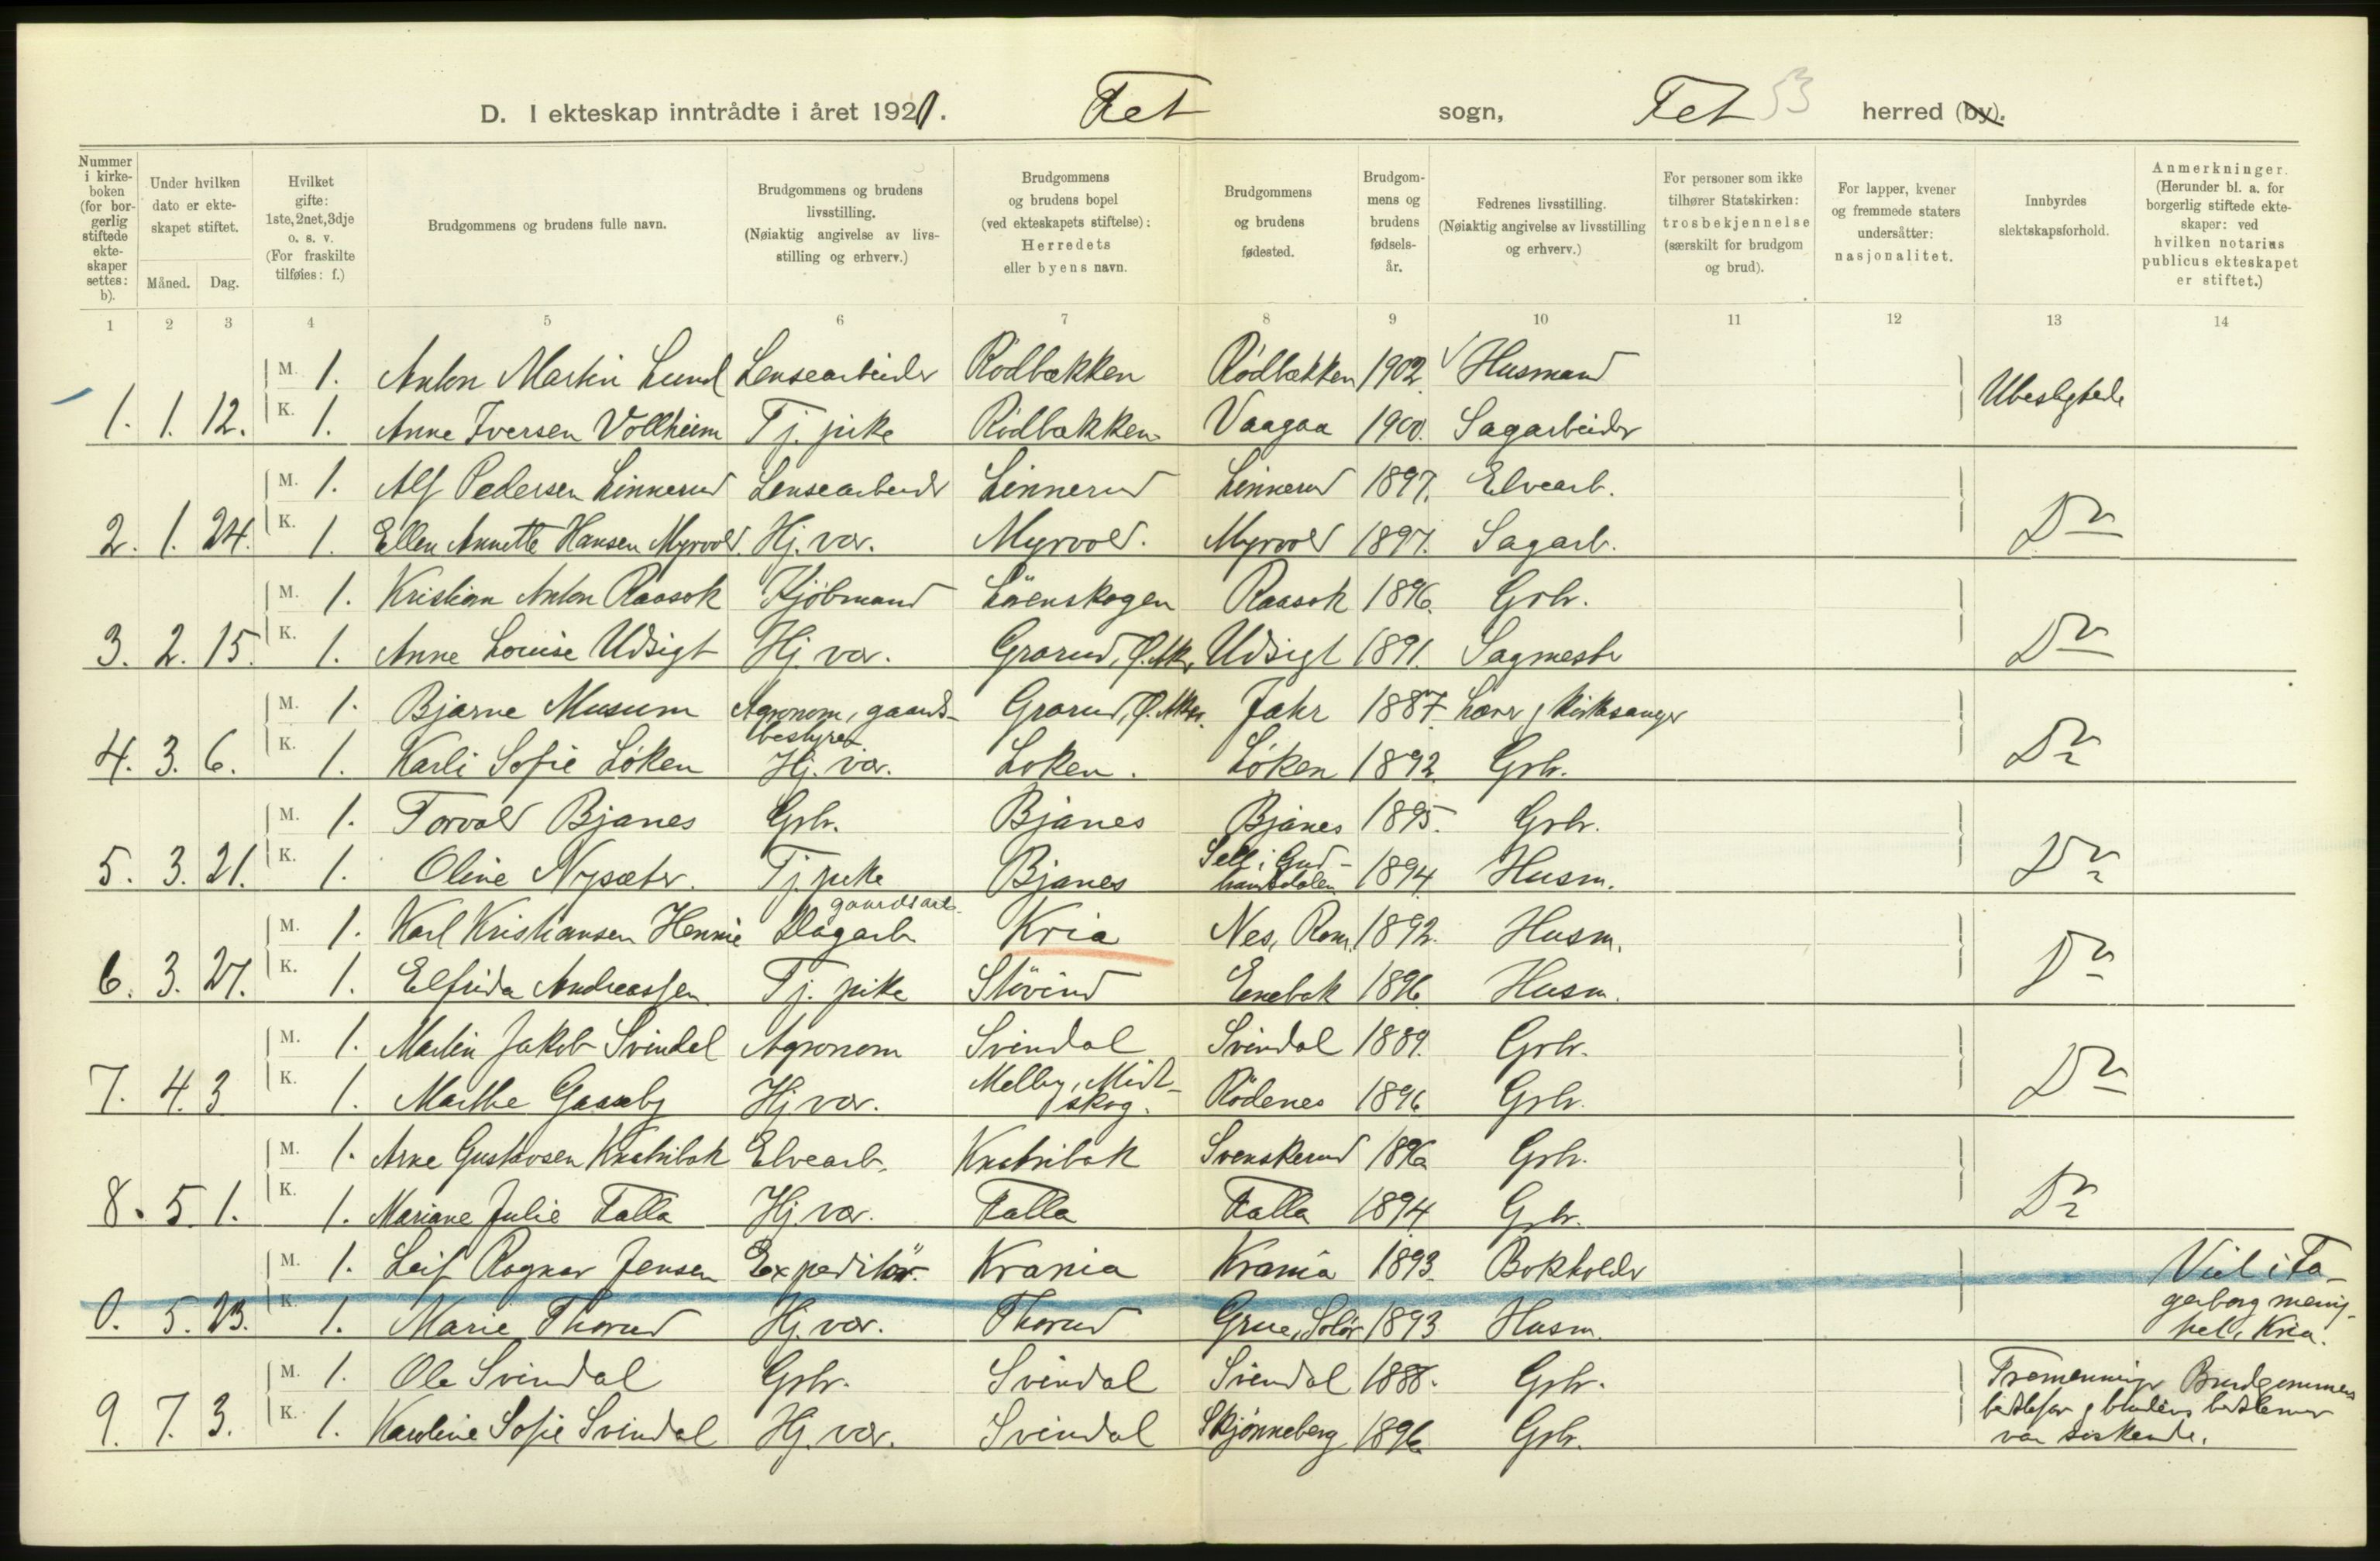 D. I ekteskap inntrådte i året 1921. Fet sogn, Fet 53 herred (by).
Nummer i kirkeboken (for borgerlig stiftede ekteskaper settes: b).
Under hvilken dato er ekteskapet stiftet.
Måned. Dag.
Hvilket gifte: 1ste, 2net, 3dje o. s. v. (For fraskilte tilføies: f.)
Brudgommens og brudens fulle navn.
Brudgommens og brudens livsstilling. (Nøiaktig angivelse av livsstilling og erhverv.)
Brudgommens og brudens bopel (ved ekteskapets stiftelse): Herredets eller byens navn.
Brudgommens og brudens fødested.
Brudgommens og brudens fødselsår.
Fedrenes livsstilling. (Nøiaktig angivelse av livsstilling og erhverv.)
For personer som ikke tilhører Statskirken: trosbekjennelse (særskilt for brudgom og brud).
For lapper, kvener og fremmede staters undersåtter: nasjonalitet.
Innbyrdes slektskapsforhold.
Anmerkninger. (Herunder bl. a. for borgerlig stiftede ekteskaper: ved hvilken notarius publicus ekteskapet er stiftet.)
1 2 3 4 5 6 7 8 9 10 11 12 13 14
M. 1. Anton Martin Lund Lensearbeider Rödbækken Rödbækken 1902 Husmand Ubeslegtede
1. 1. 12. K. 1. Anne Iversen Vollheim Tj. pike Rödbækken Vaagaa 1900. Sagarbeider
M. 1. Alf Pedersen Linnerud Lensearbeider Linnerud Linnerud 1897. Elvearb.
2. 1. 24. K. 1. Ellen Annette Hansen Myrvold. Hj. vær. Myrvold. Myrvold 1897. Sagarb. Do
M. 1. Kristian Anton Raasok Kjöbmand Lörenskogen Raasok 1896. Grbr.
3. 2. 15. K. 1. Anne Louise Udsigt Hj. vær. Grorud, Ø. Aker Udsigt 1891. Sagmester Do
M. 1. Bjarne Musum Agronom, gaards- Grorud, Ø. Aker. Jahr 1887. Lærer, kirkesanger
bestyrer
4. 3. 6. K. 1. Karli Sofie Løken Hj. vær. Løken. Løken 1892. Grbr. Do
M. 1. Torvald Bjanes Grbr. Bjanes Bjanes 1895. Grbr.
5. 3. 21. K. 1. Oline Nysæter. Tj. pike Bjanes Sell i Gud-
brandsdalen 1894. Husm. Do
gaardsarb.
M. 1. Karl Kristiansen Hennie Dagarb Kria Nes, Rom. 1892. Husm.
6. 3. 27. K. 1. Elfrida Andreassen Tj. pike Stövind Enebak 1896. Husm. Do
M. 1. Martin Jakob Svindal Agronom Svindal Svindal 1889. Grbr.
7. 4. 3 K. 1. Marthe Gaaseby Hj. vær. Melby, Mid-
skog. Rödenes 1896 Grbr. Do
M. 1. Arne Gustavsen Knatribak Elvearb. Knatribak Svenskerud 1896 Grbr.
8. 5. 1. K. 1. Mariane Julie Falla Hj. vær. Falla Falla 1894 Grbr. Do
M. 1. Leif Ragnar Jensen Expeditör. Krania Krania 1893. Bokholder Viel i Fa-
gerborg menig-
0. 5. 23. K. 1. Marie Thorud Hj. vær. Thorud Grue, Solör 1893 Husm. het, Kria.
M. 1. Ole Svindal Grbr. Svindal Svindal 1888. Grbr. Tremenninger Brudgommens
bedstefar og brudens bedstemor
9. 7. 3. K. 1. Karoline Sofie Svindal Hj. vær. Svindal Skjønneberg 1896 Grbr. var søskende.